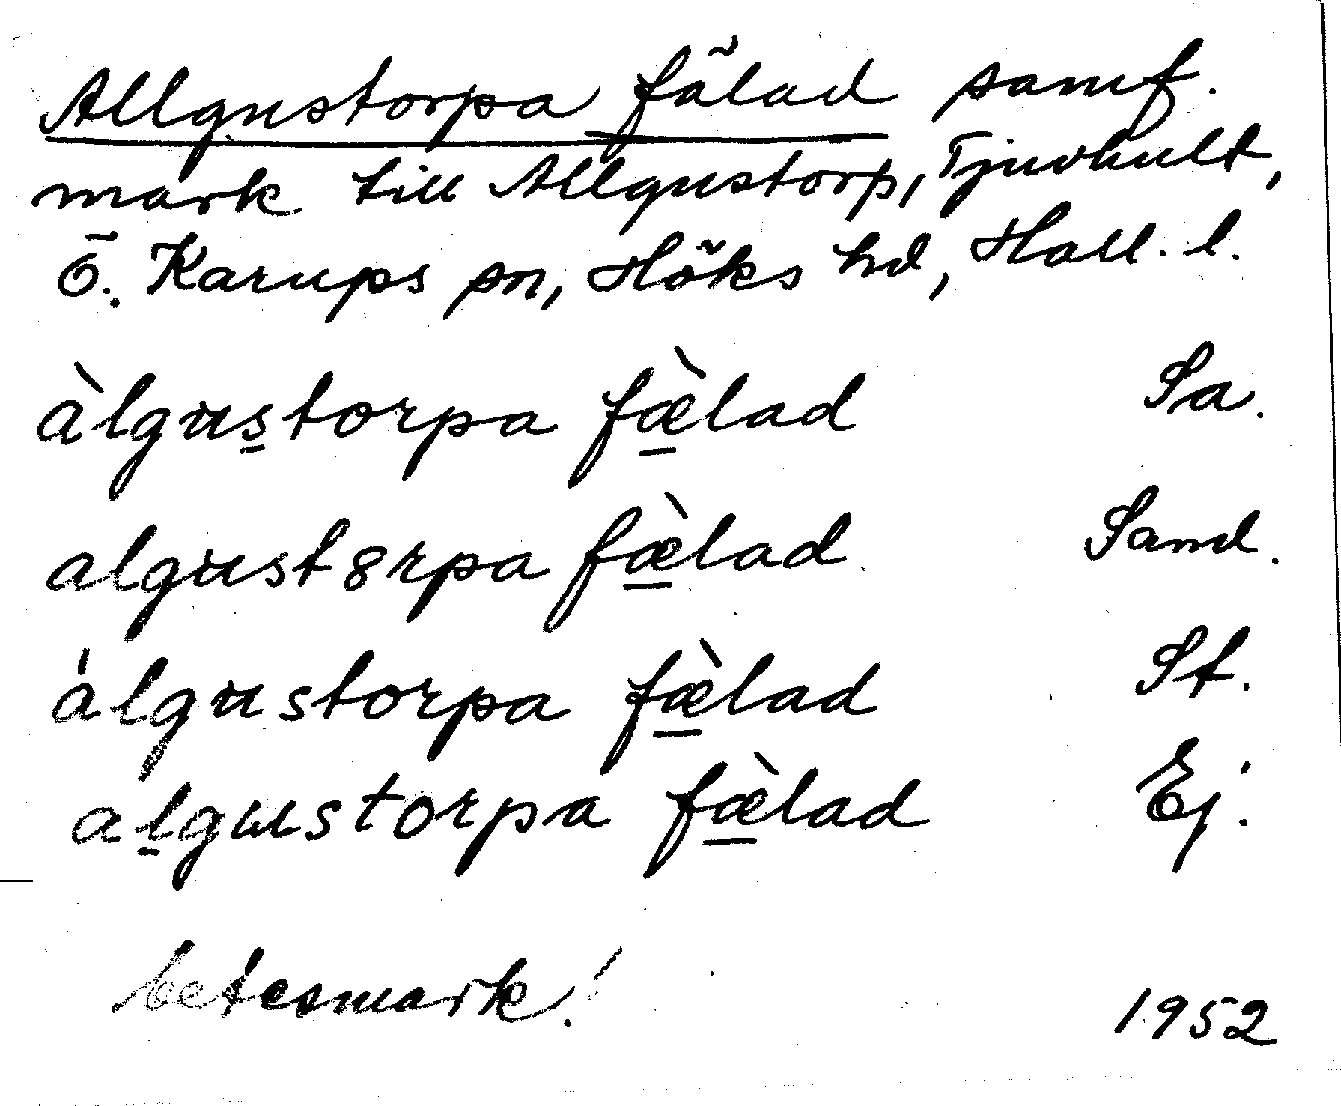 Allgustorpa fälad samf.
mark till Allgustorp, Tjuvhult,
Ö. Karups sn, Höks hd, Hall. l.
àlgustorpa fæ̀lad Sa.
algust8rpa fæ̀lad Sand.
álgustorpa fæ̀lad St.
algustorpa fæ̀lad Ej.
betesmark.!
1952